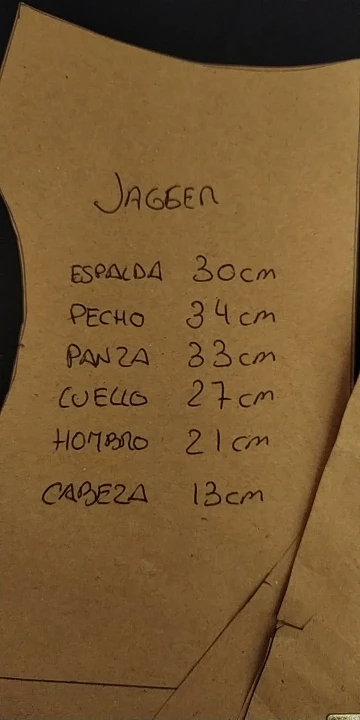 JAGGER
ESPALDA 30cm
PECHO 34cm
PANZA 33cm
CUELLO 27cm
HOMBRO 21cm
CABEZA 13cm